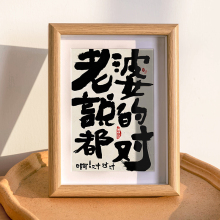 老婆
説的
都对